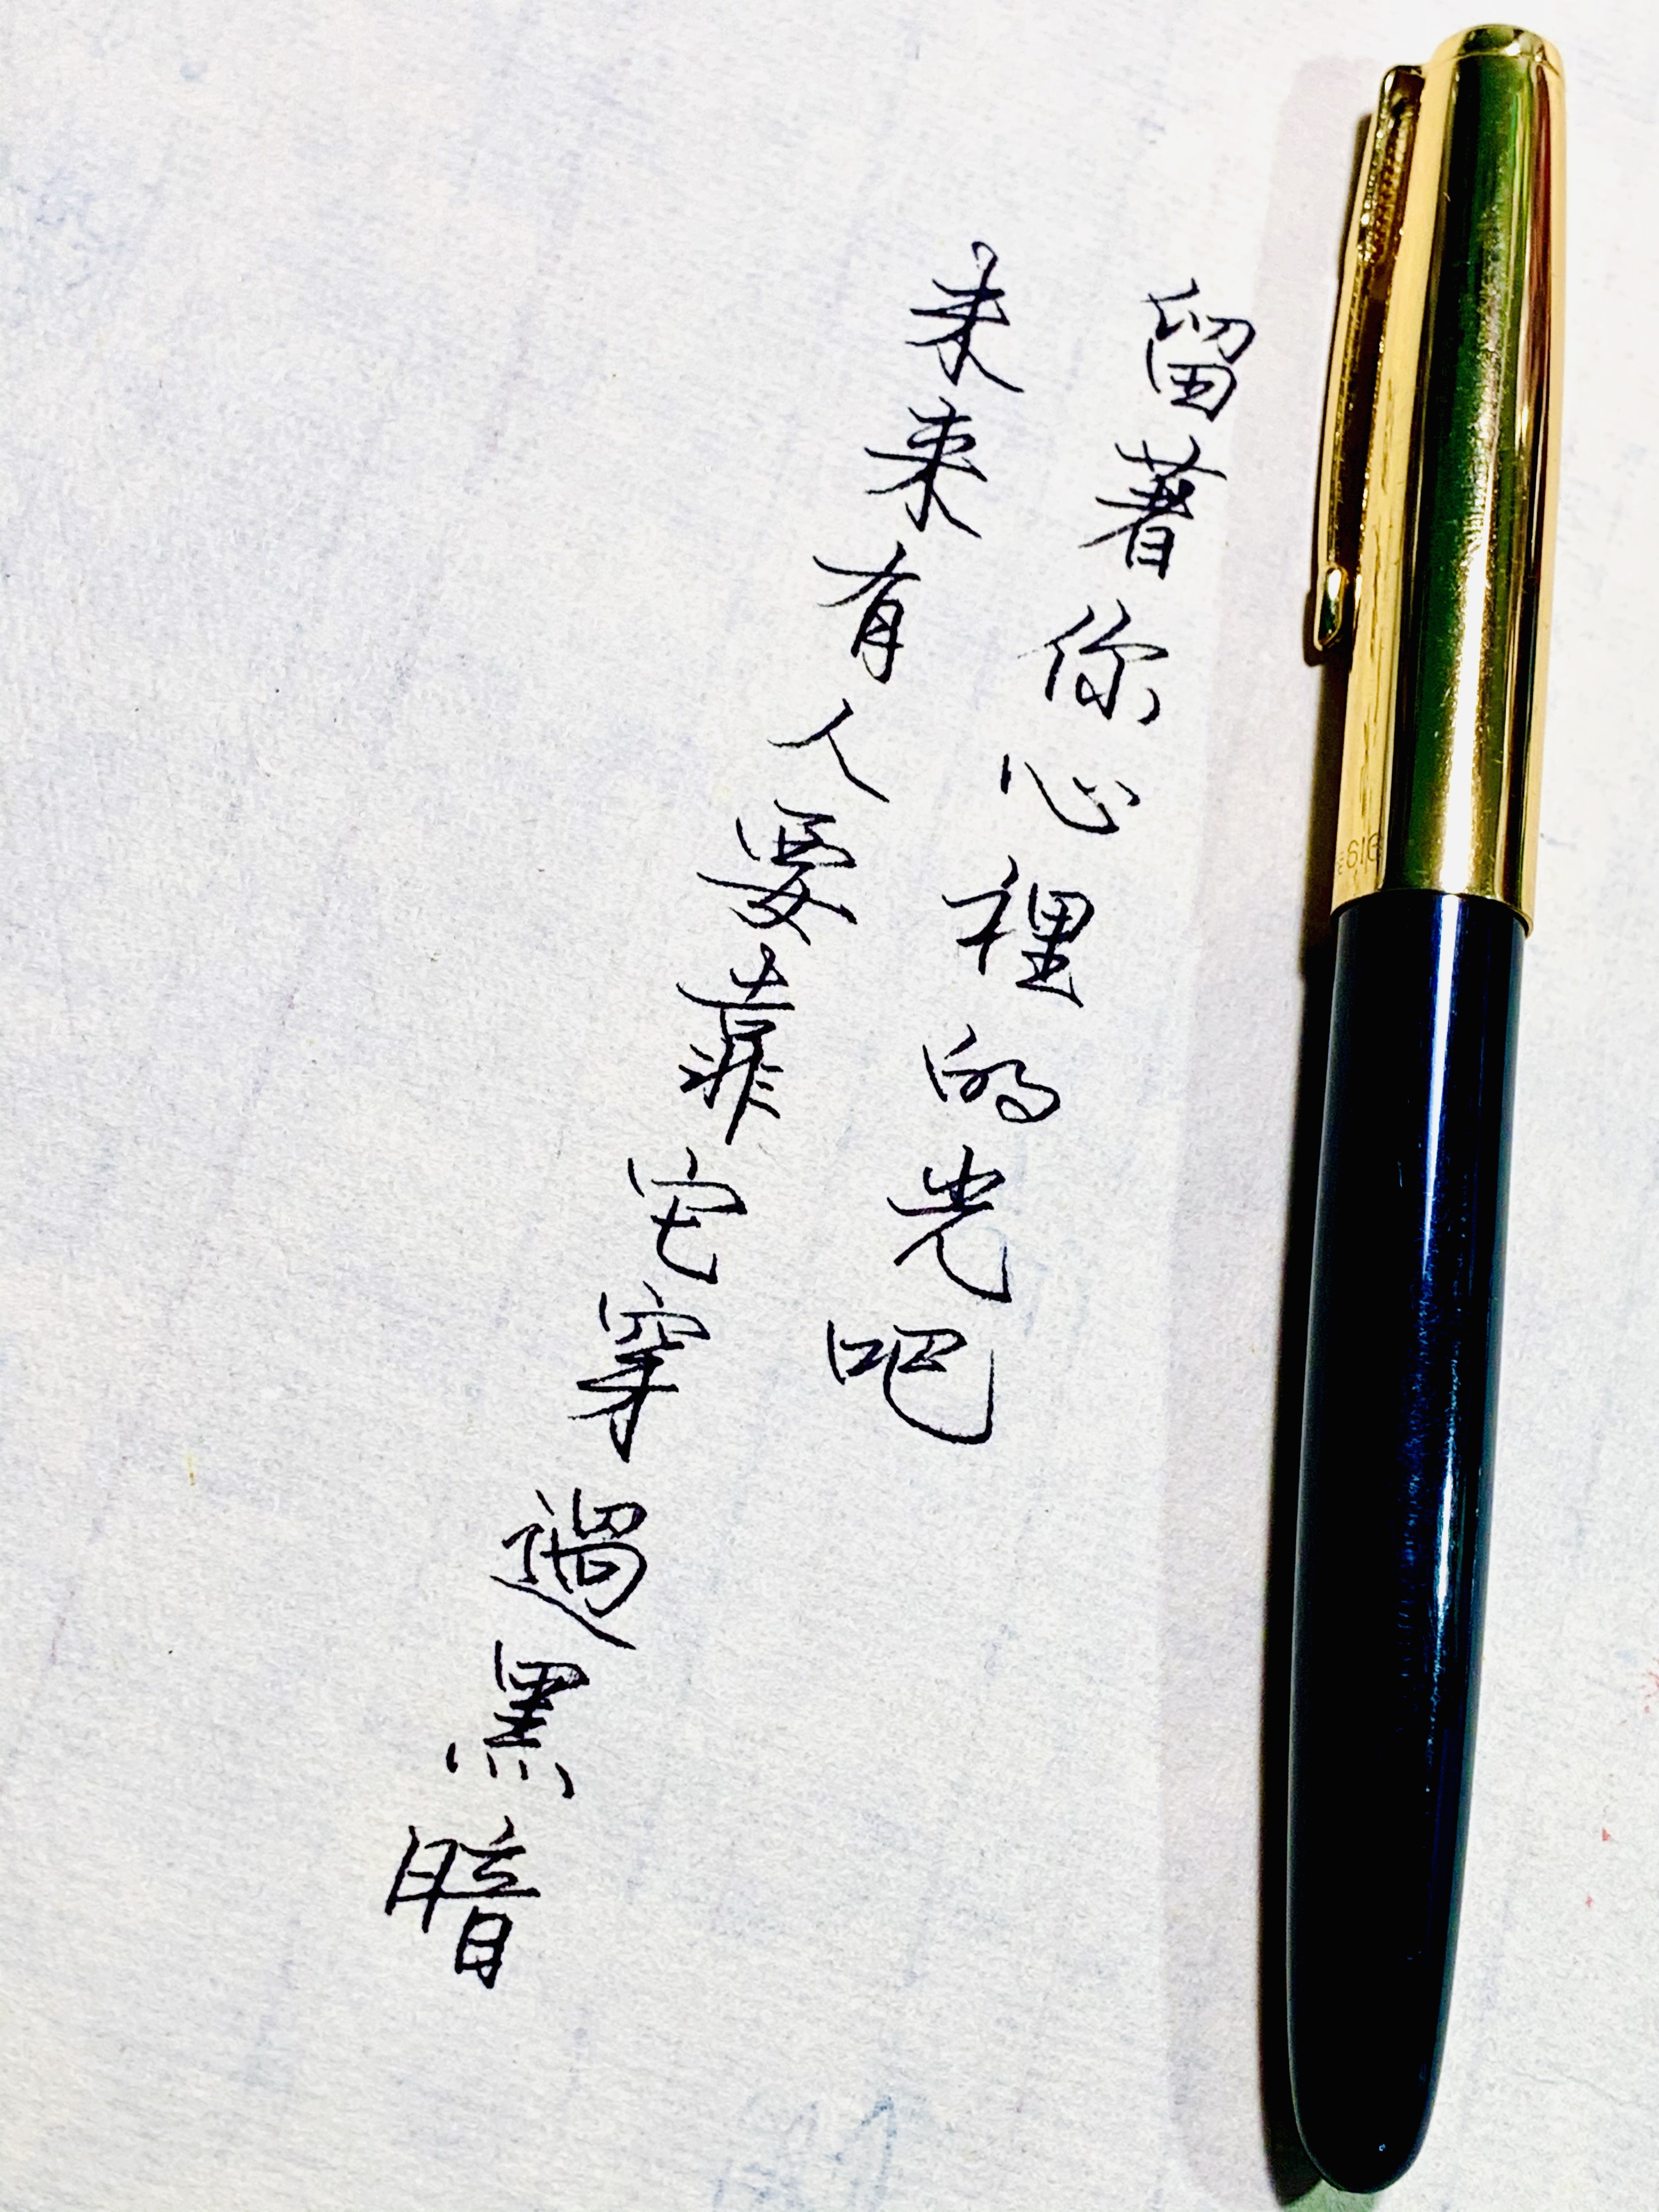 留著你心裡的光吧
未来有人要靠它穿過黑暗
616